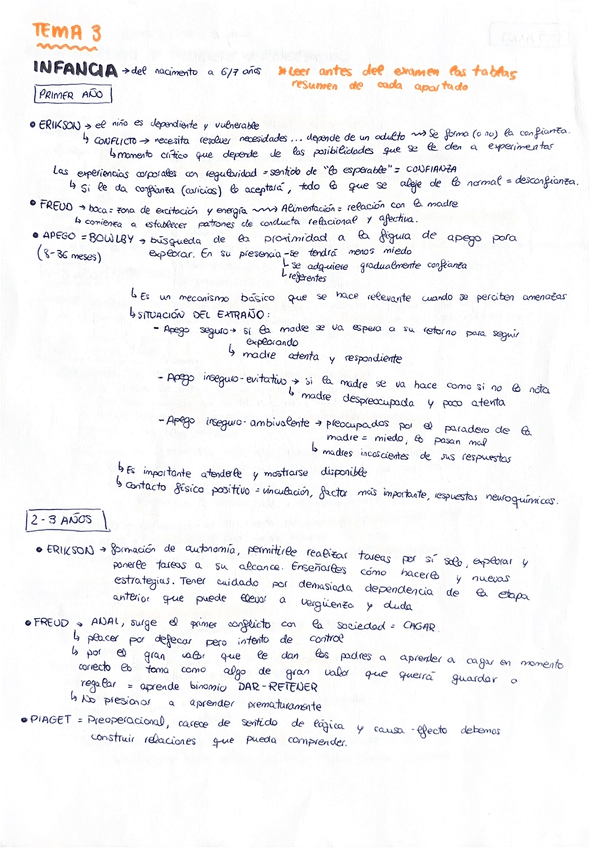 TEMA 3
INFANCIA → del nacimento a 6/7 años * Leer antes del examen las tablas
resumen de cada apartado
PRIMER AÑO
• ERIKSON → el niño es dependiente y vulnerable
↳ CONFLICTO → necesita resolver necesidades... depende de un adulto ⟿ Se forma (o no) la confianza.
↳ momento crítico que depende de las posibilidades que se le den a experimentar
Las experiencias corporales con regularidad = sentido de "lo esperable" = CONFIANZA
↳ Si le da confianza (caricias) lo aceptará, todo lo que se aleje de lo normal = desconfianza.
• FREUD → boca = zona de excitación y energía ⟿ Alimentación = relación con la madre
↳ comienza a establecer patrones de conducta relacional y afectiva.
• APEGO = BOWLBY → búsqueda de la proximidad a la figura de apego para
(8-36 meses) explorar. En su presencia - se tendrá menos miedo
↳ se adquiere gradualmente confianza
↳ referentes
↳ Es un mecanismo básico que se hace relevante cuando se perciben amenazas
↳ SITUACIÓN DEL EXTRAÑO:
- Apego seguro → si la madre se va espera a su retorno para seguir
explorando
↳ madre atenta y respondiente
- Apego inseguro-evitativo → si la madre se va hace como si no lo nota
↳ madre despreocupada y poco atenta
- Apego inseguro-ambivalente → preocupados por el paradero de la
madre = miedo, lo pasan mal
↳ madres incoscientes de sus respuestas
↳ Es importante atenderle y mostrarse disponible
↳ Contacto físico positivo = vinculación, factor más importante, respuestas neuroquímicas.
2-3 AÑOS
• ERIKSON → formación de autonomía, permitirle realizar tareas por sí solo, explorar y
ponerle tareas a su alcance. Enseñarles cómo hacerlo y nuevas
estrategias. Tener cuidado por demasiada dependencia de la etapa
anterior que puede llevar a vergüenza y duda
• FREUD → ANAL, surge el primer conflicto con la sociedad = CAGAR.
↳ placer por defecar pero intento de control
↳ por el gran valor que le dan los padres a aprender a cagar en momento
correcto lo toma como algo de gran valor que querrá guardar o
regalar = aprende binomio DAR-RETENER
↳ No presionar a aprender prematuramente
• PIAGET = Preoperacional, carece de sentido de lógica y causa-efecto debemos
construir relaciones que pueda comprender.